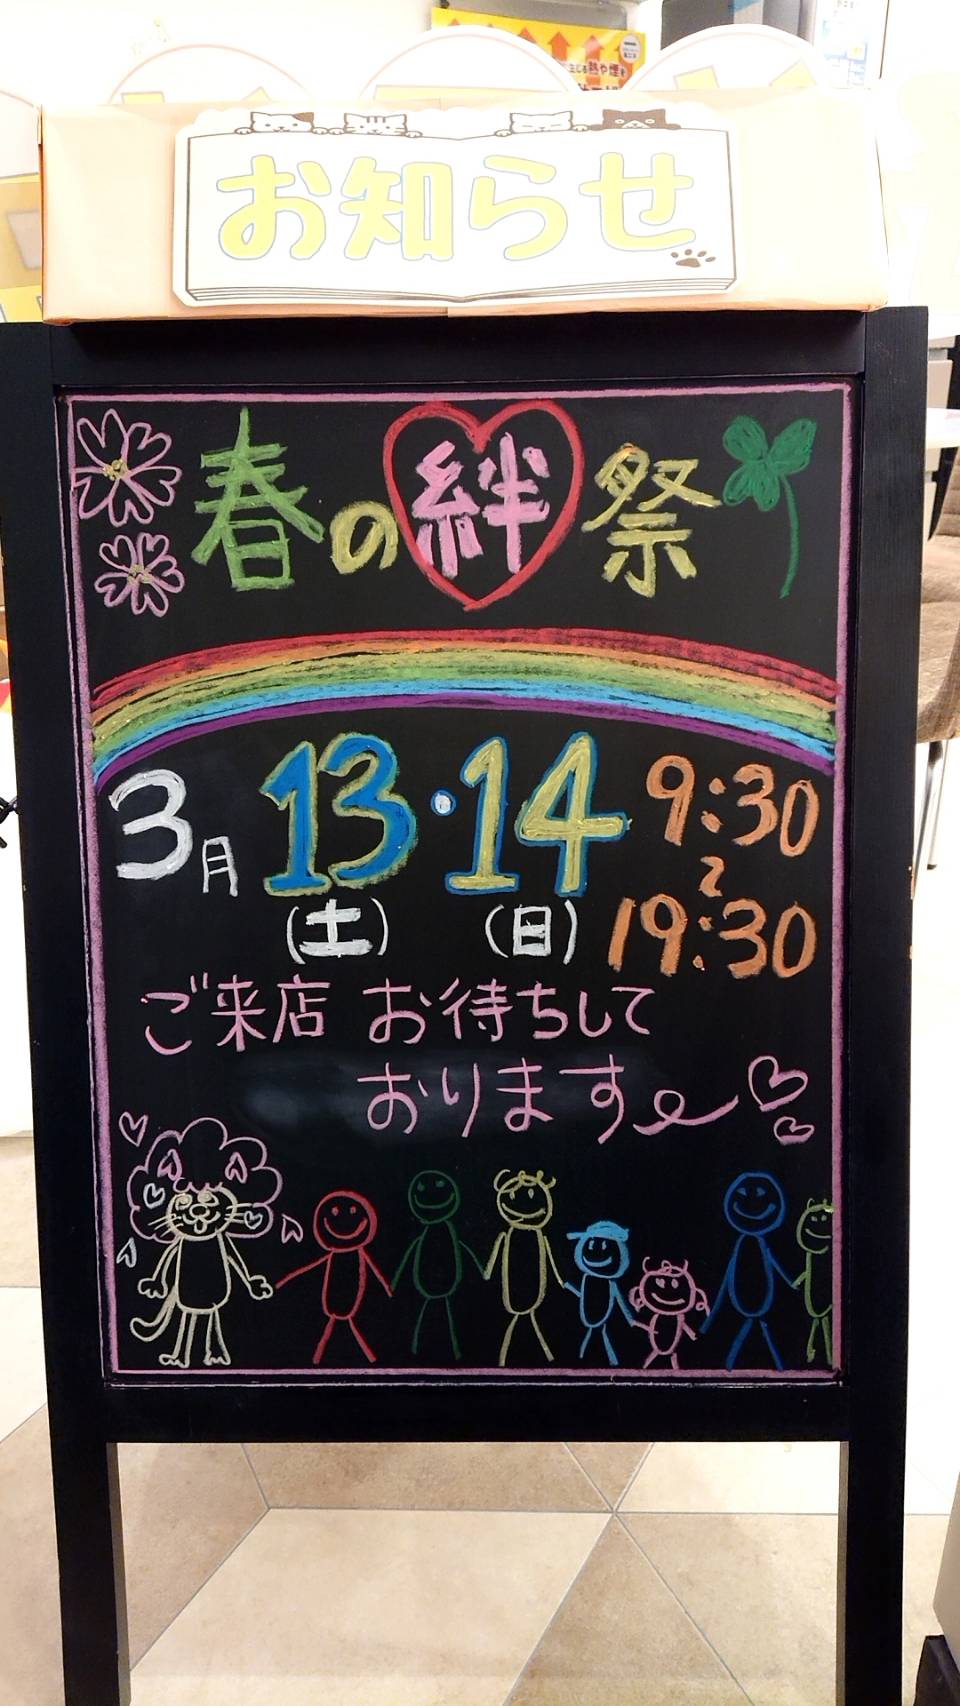 じる熱や煙を
お知らせ
春の絆祭
3月 13・14 9:30
〜
(土) (日) 19:30
ご来店 お待ちして
おります